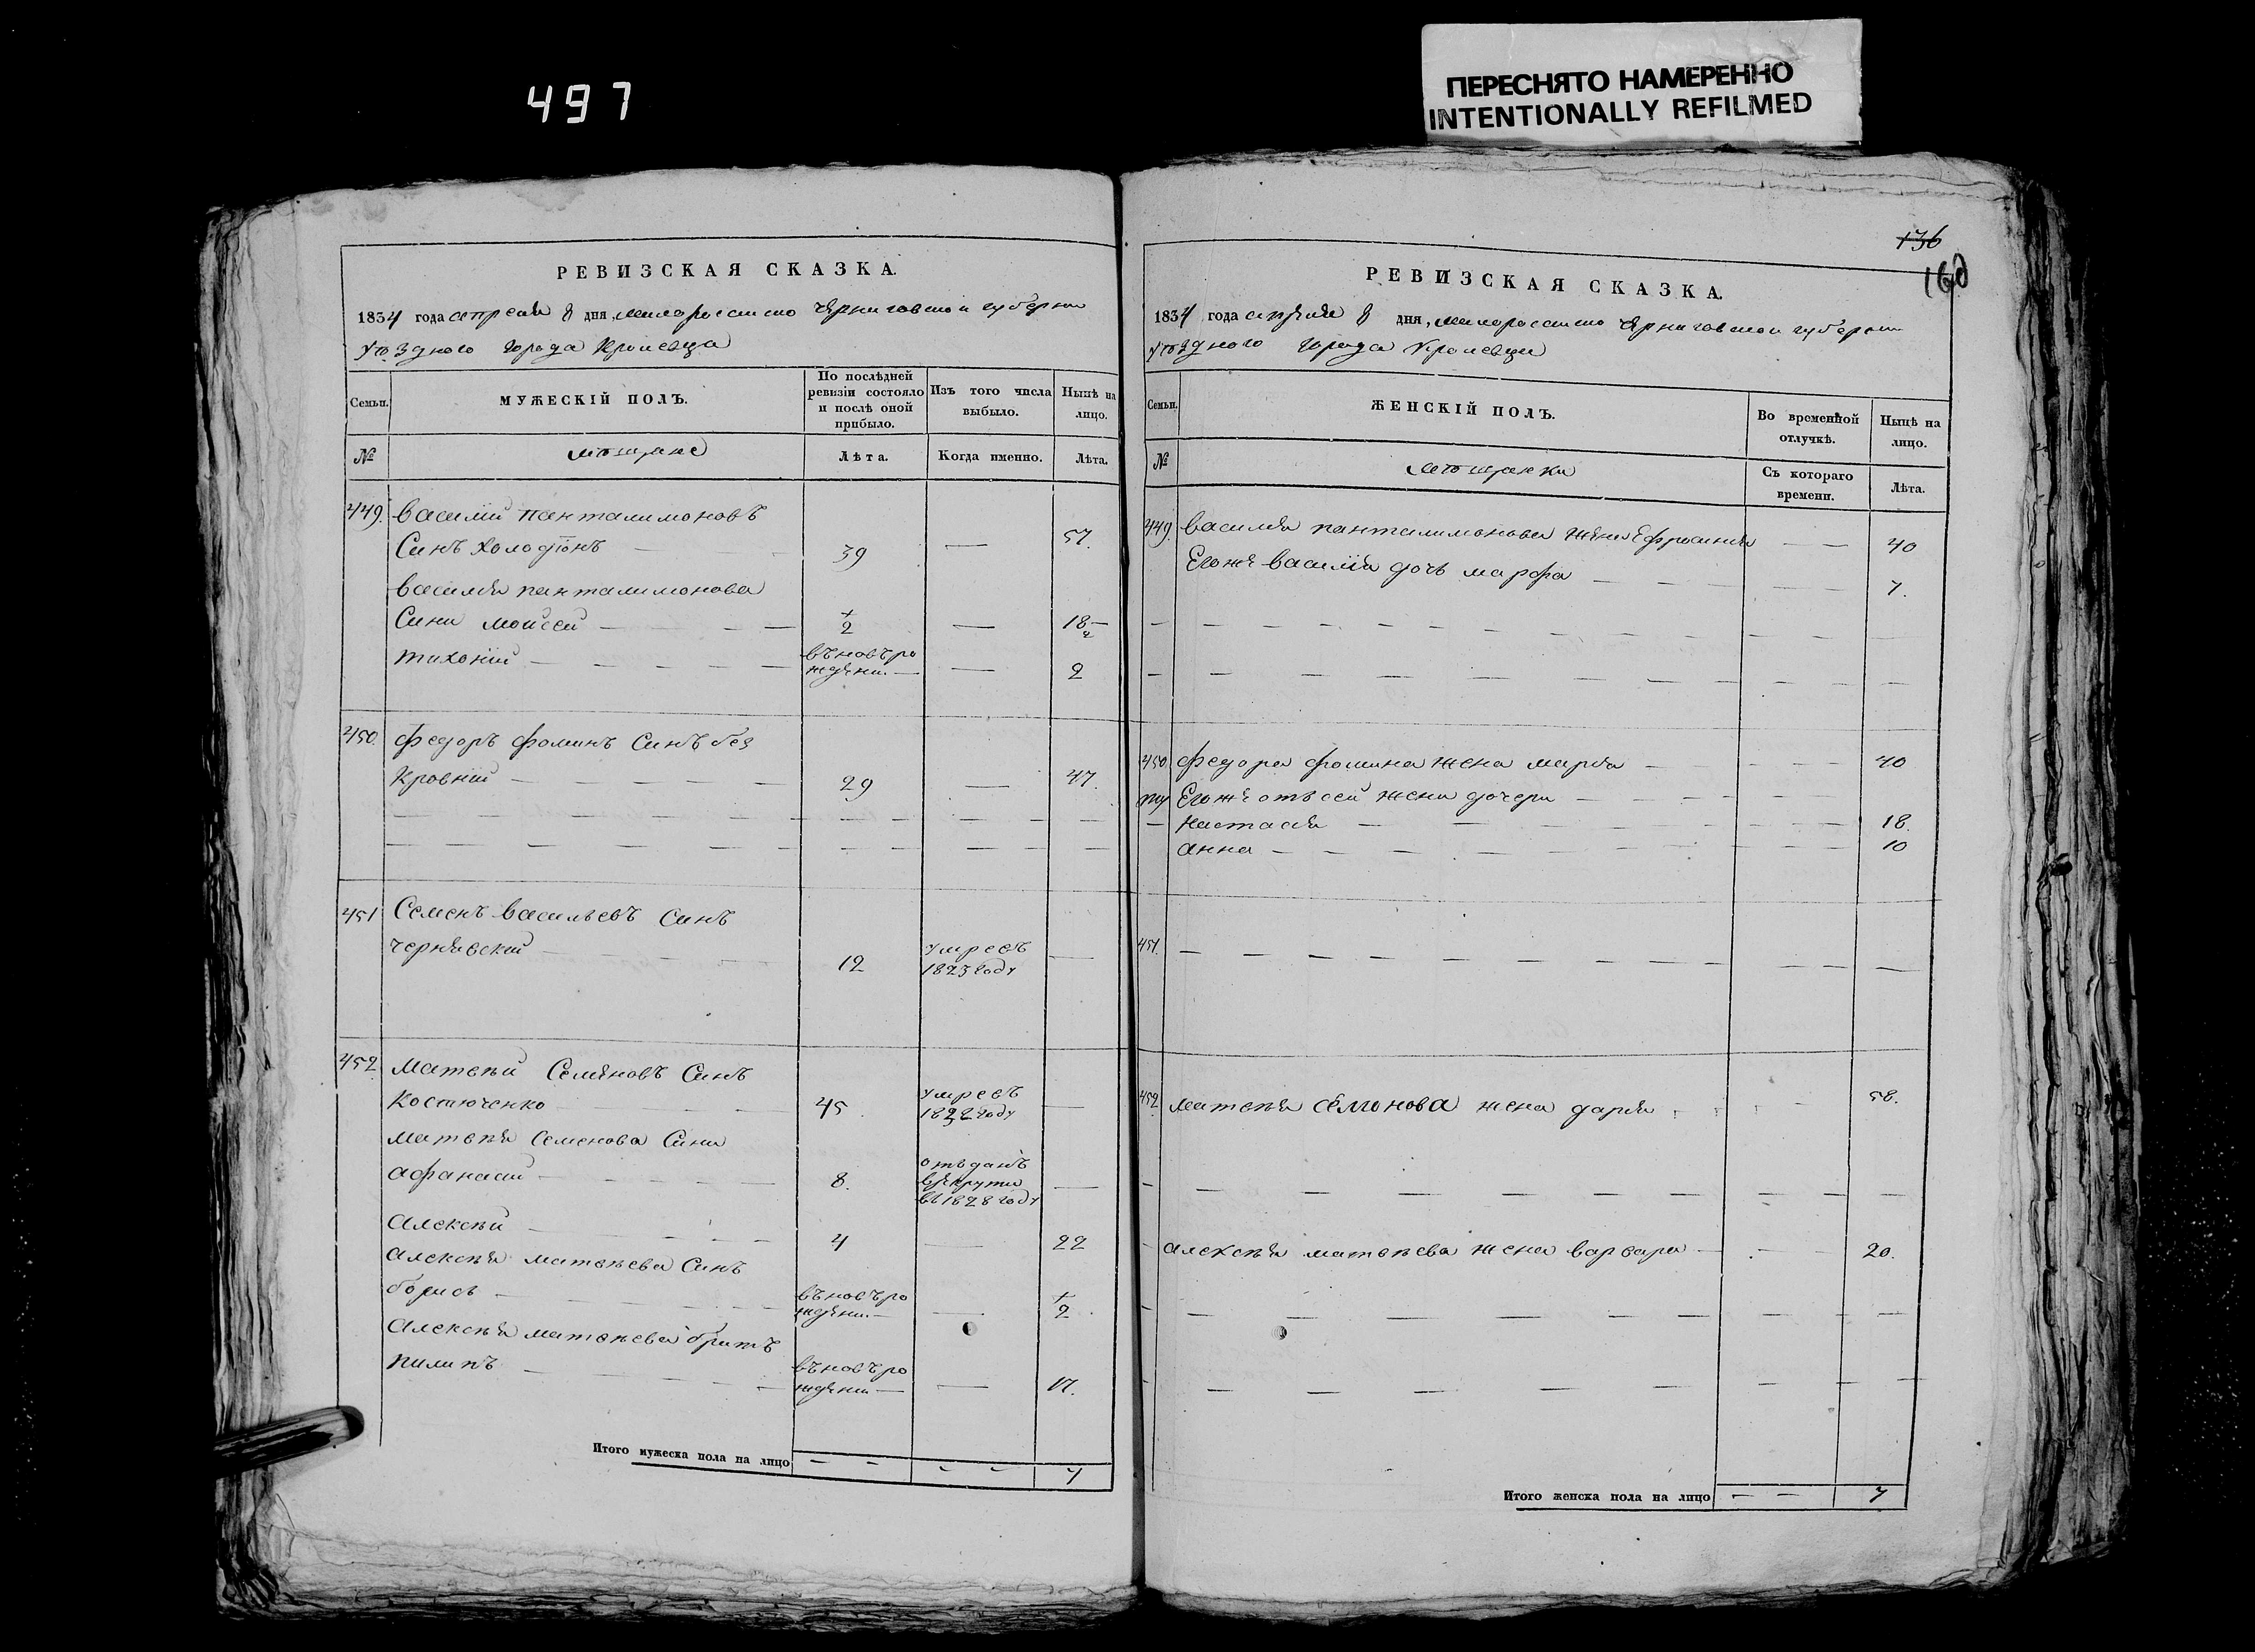 497
ПЕРЕСНЯТО НАМЕРЕННО
INTENTIONALLY REFILMED
РЕВИЗСКАЯ СКАЗКА.
1834 года апреля 8 дня, малоросийско Черниговской губернии
уѣздного города Кролевца
Семьи. МУЖЕСКІЙ ПОЛЪ. По послѣдней ревизіи состояло и послѣ оной прибыло. Изъ того числа выбыло. Нынѣ на лицо.
№ мѣщане Лѣта. Когда именно. Лѣта.
449. василій панталимоновъ
Синъ Холодіонъ — 39 — 57.
василія панталимонова
Сини моисеи — ½ — 18 ½
тихоній — въновъро
ждени — — 2
450. федоръ фоминъ Синъ без
Кровній — 29 — 47.
451 Семенъ васильевъ Синъ
чернявский — 12 умревъ —
1823 году
452. матвѣй Семеновъ Синъ
Костюченко 45. умревъ —
1822 году
матвѣя Семенова Сини
афанасий — 8. отъданъ
врекрути —
в 1828 году
алексѣй — 4 — 22
алексѣя матвѣева Синъ
борисъ — въновъро
ждени — — ½
алексѣя матвѣева братъ
пилипъ — въновъро
ждени — — 17.
Итого мужеска пола на лицо — — — — 7
136
160
РЕВИЗСКАЯ СКАЗКА.
1834 года апреля 8 дня, малоросийско Черниговской губернии
уѣздного города Кролевца
Семьи. ЖЕНСКІЙ ПОЛЪ. Во временной отлучкѣ. Нынѣ на лицо.
№ мѣщанки Съ котораго времени. Лѣта.
449. василія панталимонова жена Ефросинія — — 40
Егоже василія дочъ марфа — — 7.
450. федора фомина жена марія — — 40
Егоже отъ сей жени дочери —
настасія — 18.
анна — 10
451. —
452 матвѣя семионова жена дарія 58.
алексѣя матвѣева жена варвара — 20.
Итого женска пола на лицо — — 7